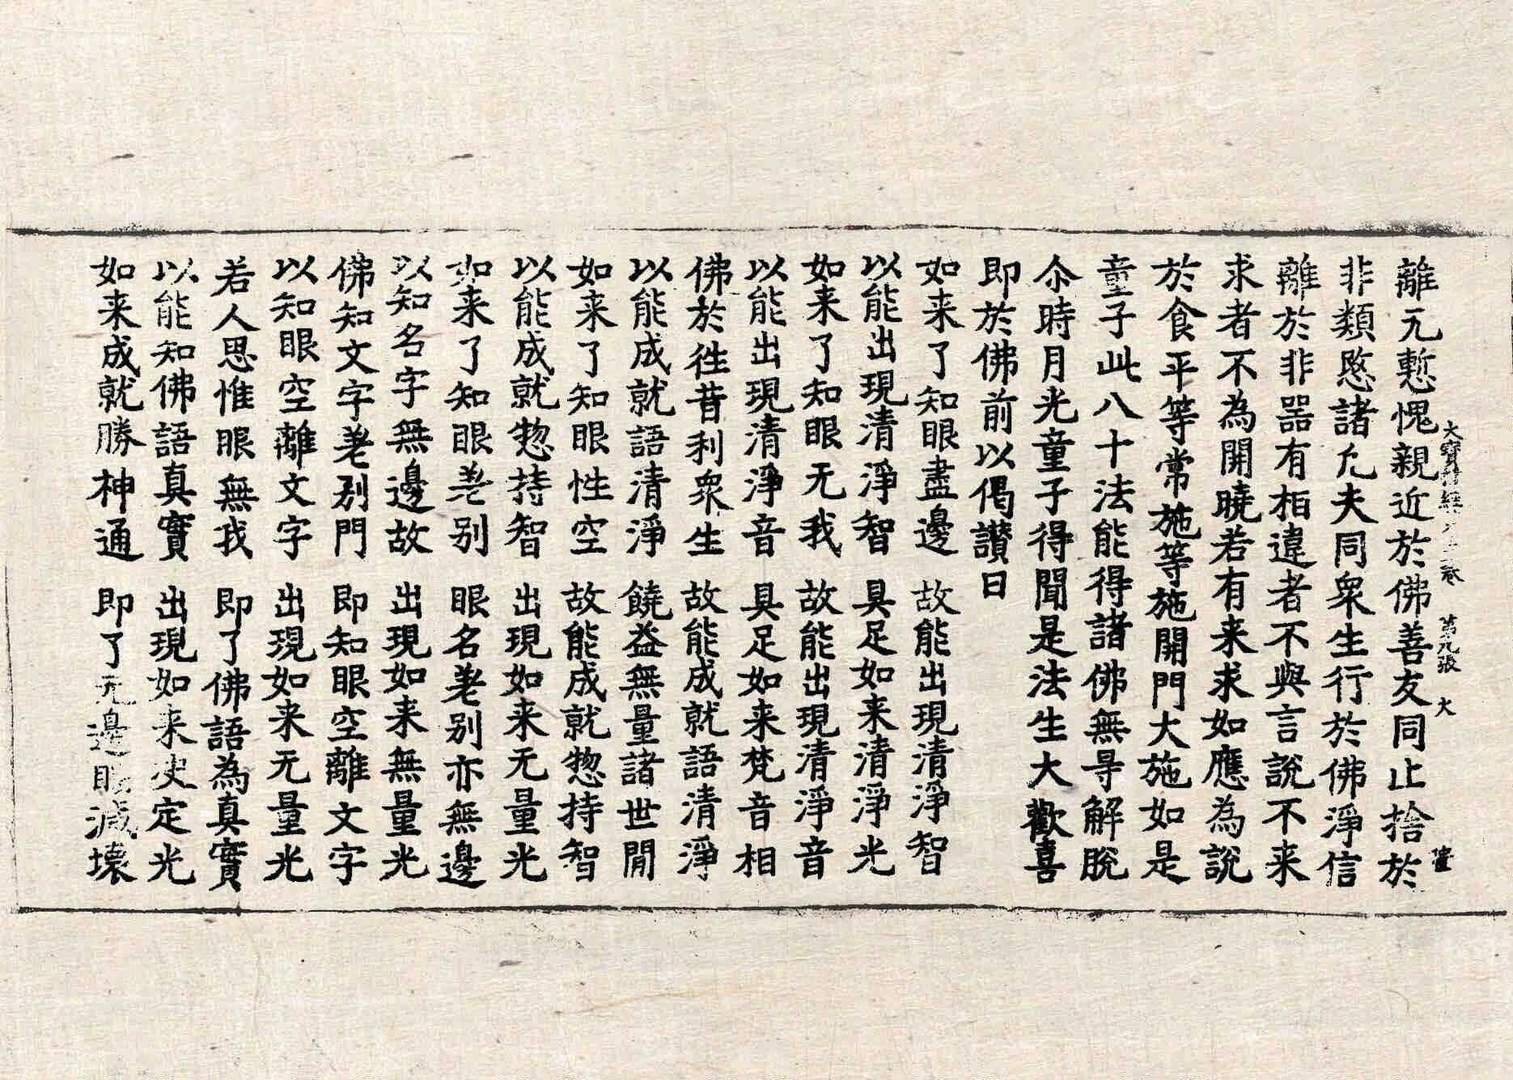 大寶積經 卷 第九張 大
離无慙愧親近於佛善友同止捨於
非類愍諸凢夫同衆生行於佛淨信
離於非器有相違者不與言說不来
求者不為開曉若有来求如應為說
於食平等常施等施開門大施如是
童子此八十法能得諸佛無㝵解脫
尒時月光童子得聞是法生大歡喜
即於佛前以偈讃曰
如来了知眼盡邊 故能出現清淨智
以能出現清淨智 具足如来清淨光
如来了知眼无我 故能出現清淨音
以能出現清淨音 具足如来梵音相
佛於徃昔利衆生 故能成就語清淨
以能成就語清淨 饒益無量諸世閒
如来了知眼性空 故能成就惣持智
以能成就惣持智 出現如来无量光
如来了知眼差别 眼名差别亦無邊
以知名字無邊故 出現如来無量光
佛知文字差别門 即知眼空離文字
以知眼空離文字 出現如来无量光
若人思惟眼無我 即了佛語為真實
以能知佛語真實 出現如来决定光
如来成就勝神通 即了无邊眼滅壞